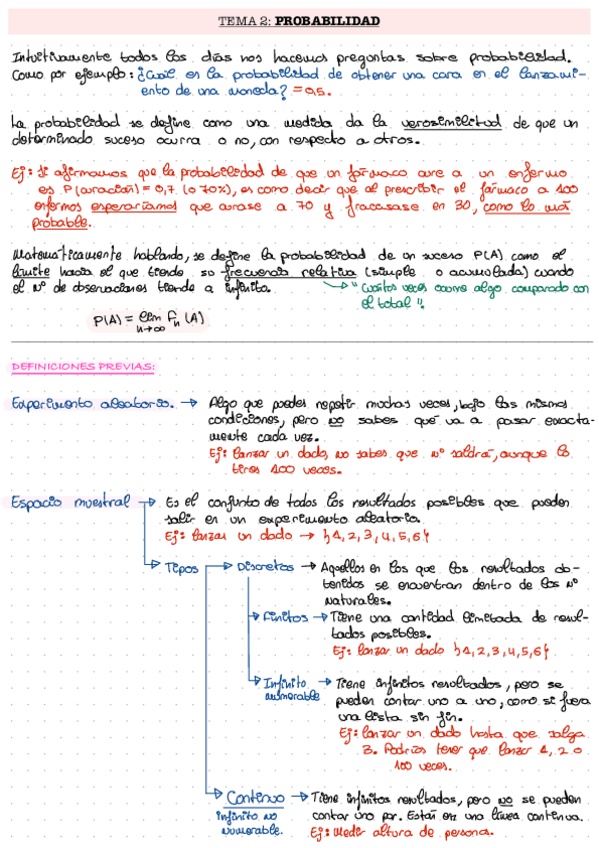 TEMA 2: PROBABILIDAD
Intuitivamente todos los días nos hacemos preguntas sobre probabilidad.
Como por ejemplo: ¿Cuál es la probabilidad de obtener una cara en el lanzami-
ento de una moneda? = 0,5.
La probabilidad se define como una medida de la verosimilitud de que un
determinado suceso ocurra o no, con respecto a otros.
Ej: Si afirmamos que la probabilidad de que un fármaco cure a un enfermo
es P(curación) = 0,7 (o 70%), es como decir que al prescribir el fármaco a 100
enfermos esperaríamos que curase a 70 y fracasase en 30, como lo más
probable.
Matemáticamente hablando, se define la probabilidad de un suceso P(A) como el
límite hacia el que tiende su frecuencia relativa (simple o acumulada) cuando
el Nº de observaciones tiende a infinito.
"Cuántas veces ocurre algo comparado con
el total".
P(A) = lim fn (A)
n→∞
DEFINICIONES PREVIAS:
Experimento aleatorio. → Algo que puedes repetir muchas veces, bajo las mismas
condiciones, pero no sabes qué va a pasar exacta-
mente cada vez.
Ej: lanzar un dado, no sabes que nº saldrá, aunque lo
tires 100 veces.
Espacio muestral → Es el conjunto de todos los resultados posibles que pueden
salir en un experimento aleatorio.
Ej: lanzar un dado → {1,2,3,4,5,6}
Tipos → Discretos → Aquellos en los que los resultados ob-
tenidos se encuentran dentro de los Nº
naturales.
Finitos → Tiene una cantidad limitada de resul-
tados posibles.
Ej: lanzar un dado {1,2,3,4,5,6}
Infinito → Tiene infinitos resultados, pero se
numerable pueden contar uno a uno, como si fuera
una lista sin fin.
Ej: lanzar un dado hasta que salga
3. Podrías tener que lanzar 1, 2 o
100 veces.
Continuo → Tiene infinitos resultados, pero no se pueden
infinito no contar uno por. Están en una línea continua.
numerable. Ej: Medir altura de persona.